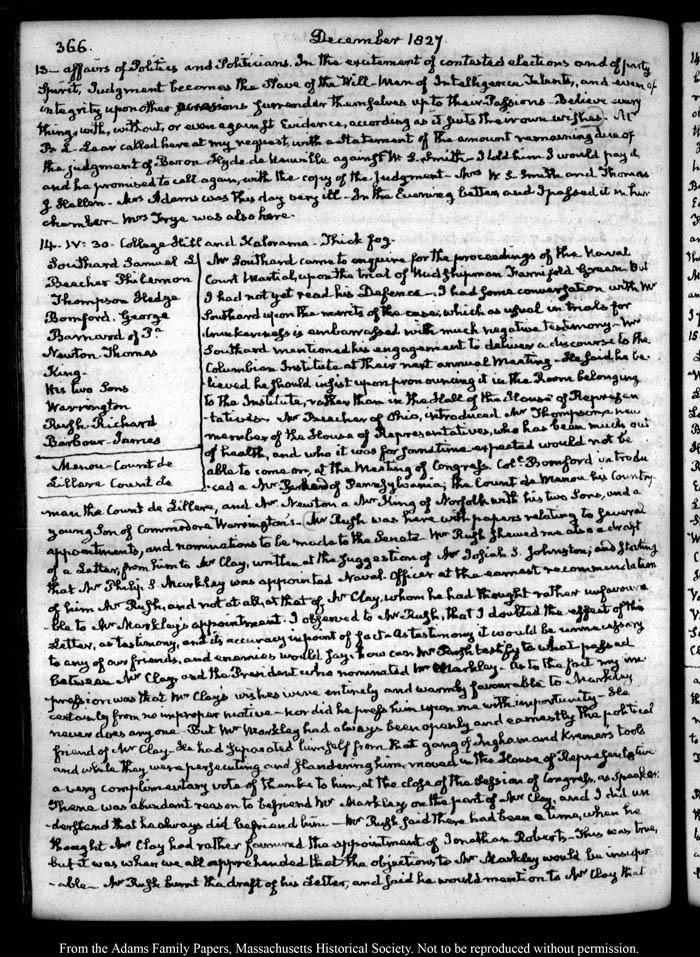 366.
December 1827.
13— affairs of Politics and Politicians. In the excitement of contested elections and of party
Spirit, Judgment becomes the Slave of the Will—Men of Intelligence Talents, and even of
integrity upon other occasions surrender themselves up to their Passions—Believe every
thing, with, without, or even against Evidence, according as it suits their own wishes. Mr
B. L. Lear called here at my request, with a Statement of the amount remaining due of
the judgment of Baron Hyde de Neuville against W. S. Smith—I told him I would pay it,
and he promised to call again, with the copy of the Judgment—Mrs W. S. Smith and Thomas
J. Hellen. Mrs Adams was this day very ill—In the Evening better, and I passed it in her
chamber—Mrs Frye was also here.
14. IV: 30. College Hill and Kalorama. Thick fog.
Southard Samuel L
Beecher Philemon
Thompson Hedge
Bomford. George
Barnard of Pa
Newton. Thomas
King.
His two Sons
Warrington
Rush Richard
Barbour James
Menou—Count de
Lillers Count de
Mr Southard came to enquire for the proceedings of the Naval
Court Martial, upon the trial of Midshipman Farnifold Green. But
I had not yet read his Defence—I had some conversation with Mr
Southard upon the merits of the case; which as usual in trials for
drunkenness is embarrassed with much negative testimony—Mr
Southard mentioned his engagement to deliver a discourse to the
Columbian Institute at their next annual Meeting—He said he be-
lieved he should insist upon pronouncing it in the Room belonging
to the Institute, rather than in the Hall of the House of Represen
-tatives. Mr Beecher of Ohio, introduced Mr Thompson a new
member of the House of Representatives, who has been much out
of health, and who it was for some time expected would not be
able to come on, at the Meeting of Congress. Coll. Bomford introdu
-ced a Mr of Pennsylvania; the Count de Menou his Country-
man the Count de Lillers, and Mr Newton a Mr King of Norfolk with his two Sons, and a
young Son of Commodore Warrington's—Mr Rush was here with papers relating to several
appointments, and nominations to be made to the Senate. Mr Rush shewed me also a draft
of a Letter, from him to Mr Clay, written at the suggestion of Mr Josiah S. Johnston; and stating
that Mr Philip S. Markley was appointed Naval Officer at the earnest recommendation
of him Mr Rush, and not at all, at that of Mr Clay, whom he had thought rather unfavoura
-ble to Mr Markley's appointment. I observed to Mr Rush, that I doubted the effect of this
Letter, as testimony, and its accuracy in point of fact. As testimony it would be unnecessary
to any of our friends, and enemies would say. how can Mr Rush testify to what passed
between Mr Clay, and the President who nominated Mr Markley—As to the fact my im
pression was that Mr Clay's wishes were entirely and warmly favourable to Markley
certainly from no improper motive—nor did he press him upon me with importunity—He
never does any one. But Mr Markley had always been openly and earnestly the political
friend of Mr Clay—He had separated himself from that gang of Ingham and Kremers tools
and while they were persecuting and slandering him, moved in the House of Representative
a very complimentary vote of thanks to him, at the close of the Session of Congress, as Speaker.
There was abundant reason to befriend Mr Markley on the part of Mr Clay, and I did un
-derstand that he always did befriend him—Mr Rush said there had been a time, when he
thought Mr Clay had rather favoured the appointment of Jonathan Roberts—This was true,
but it was when we all apprehended that the objections to Mr Markley would be insuper
-able—Mr Rush burnt the draft of his Letter, and said he would mention to Mr Clay that
From the Adams Family Papers, Massachusetts Historical Society. Not to be reproduced without permission.